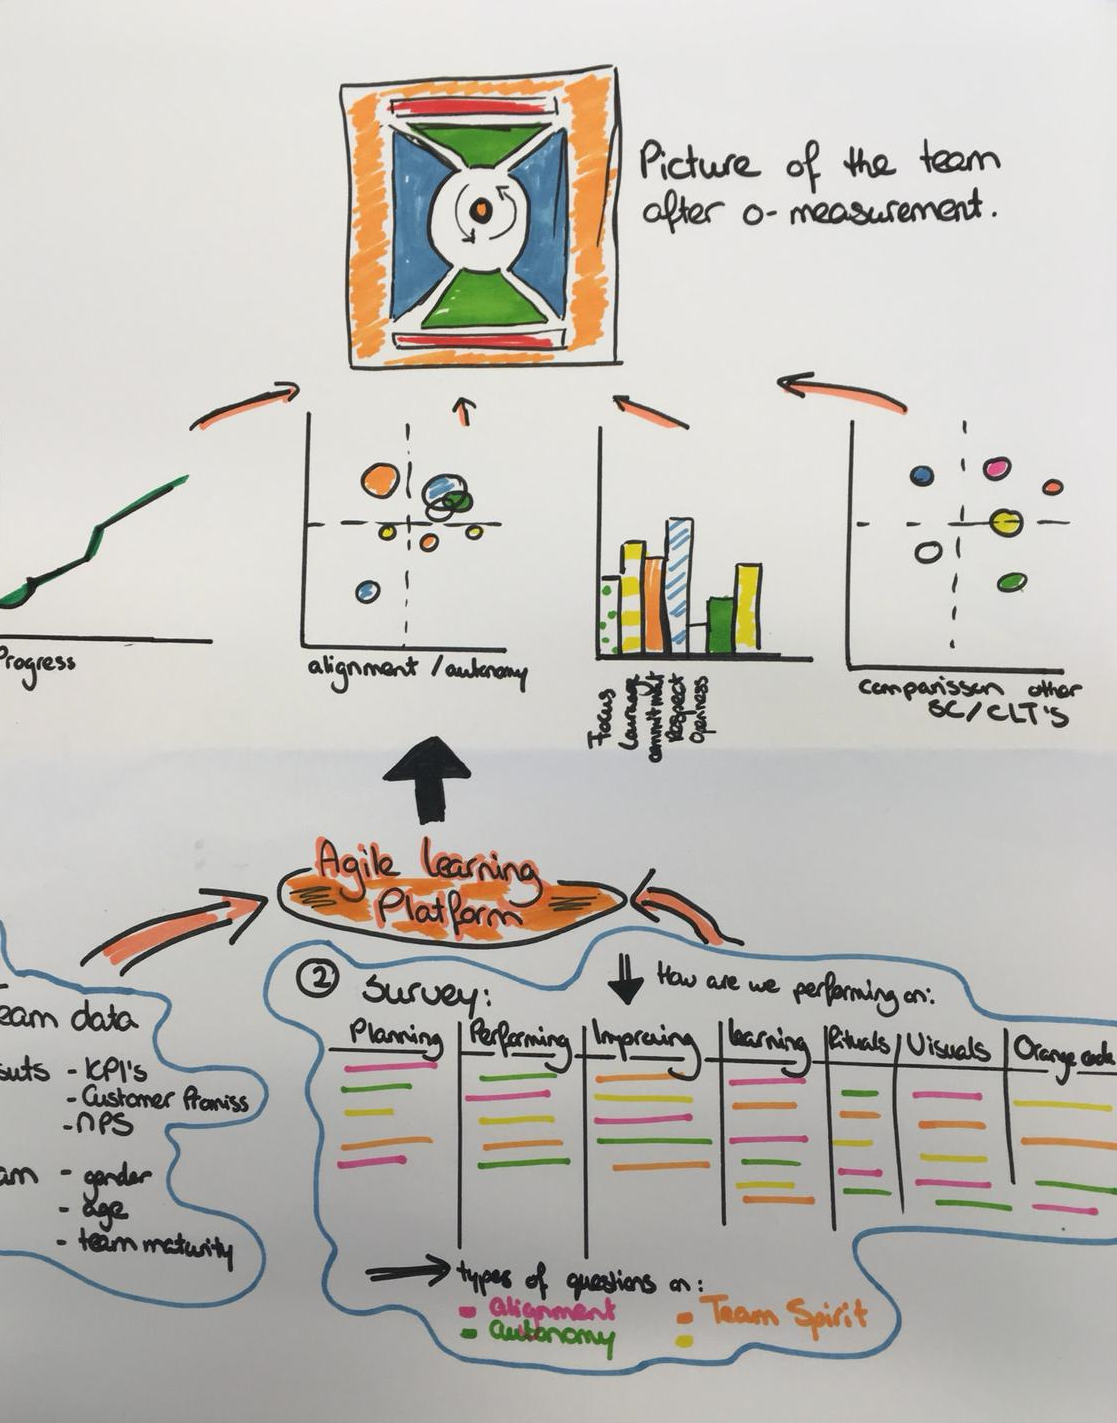 Picture of the team
after o- measurement.
Progress
alignment / autonomy
Focus
Courage
commitment
Respect
Openness
comparisson other
SC/CLT'S
Agile Learning
Platform
eam data
suts - KPI's
- Customer Promiss
- NPS
am - gender
- age
- team maturity
② Survey:
How are we performing on:
Planning Performing Improving Learning Rituals Visuals Orange code
types of questions on:
alignment
autonomy
Team Spirit